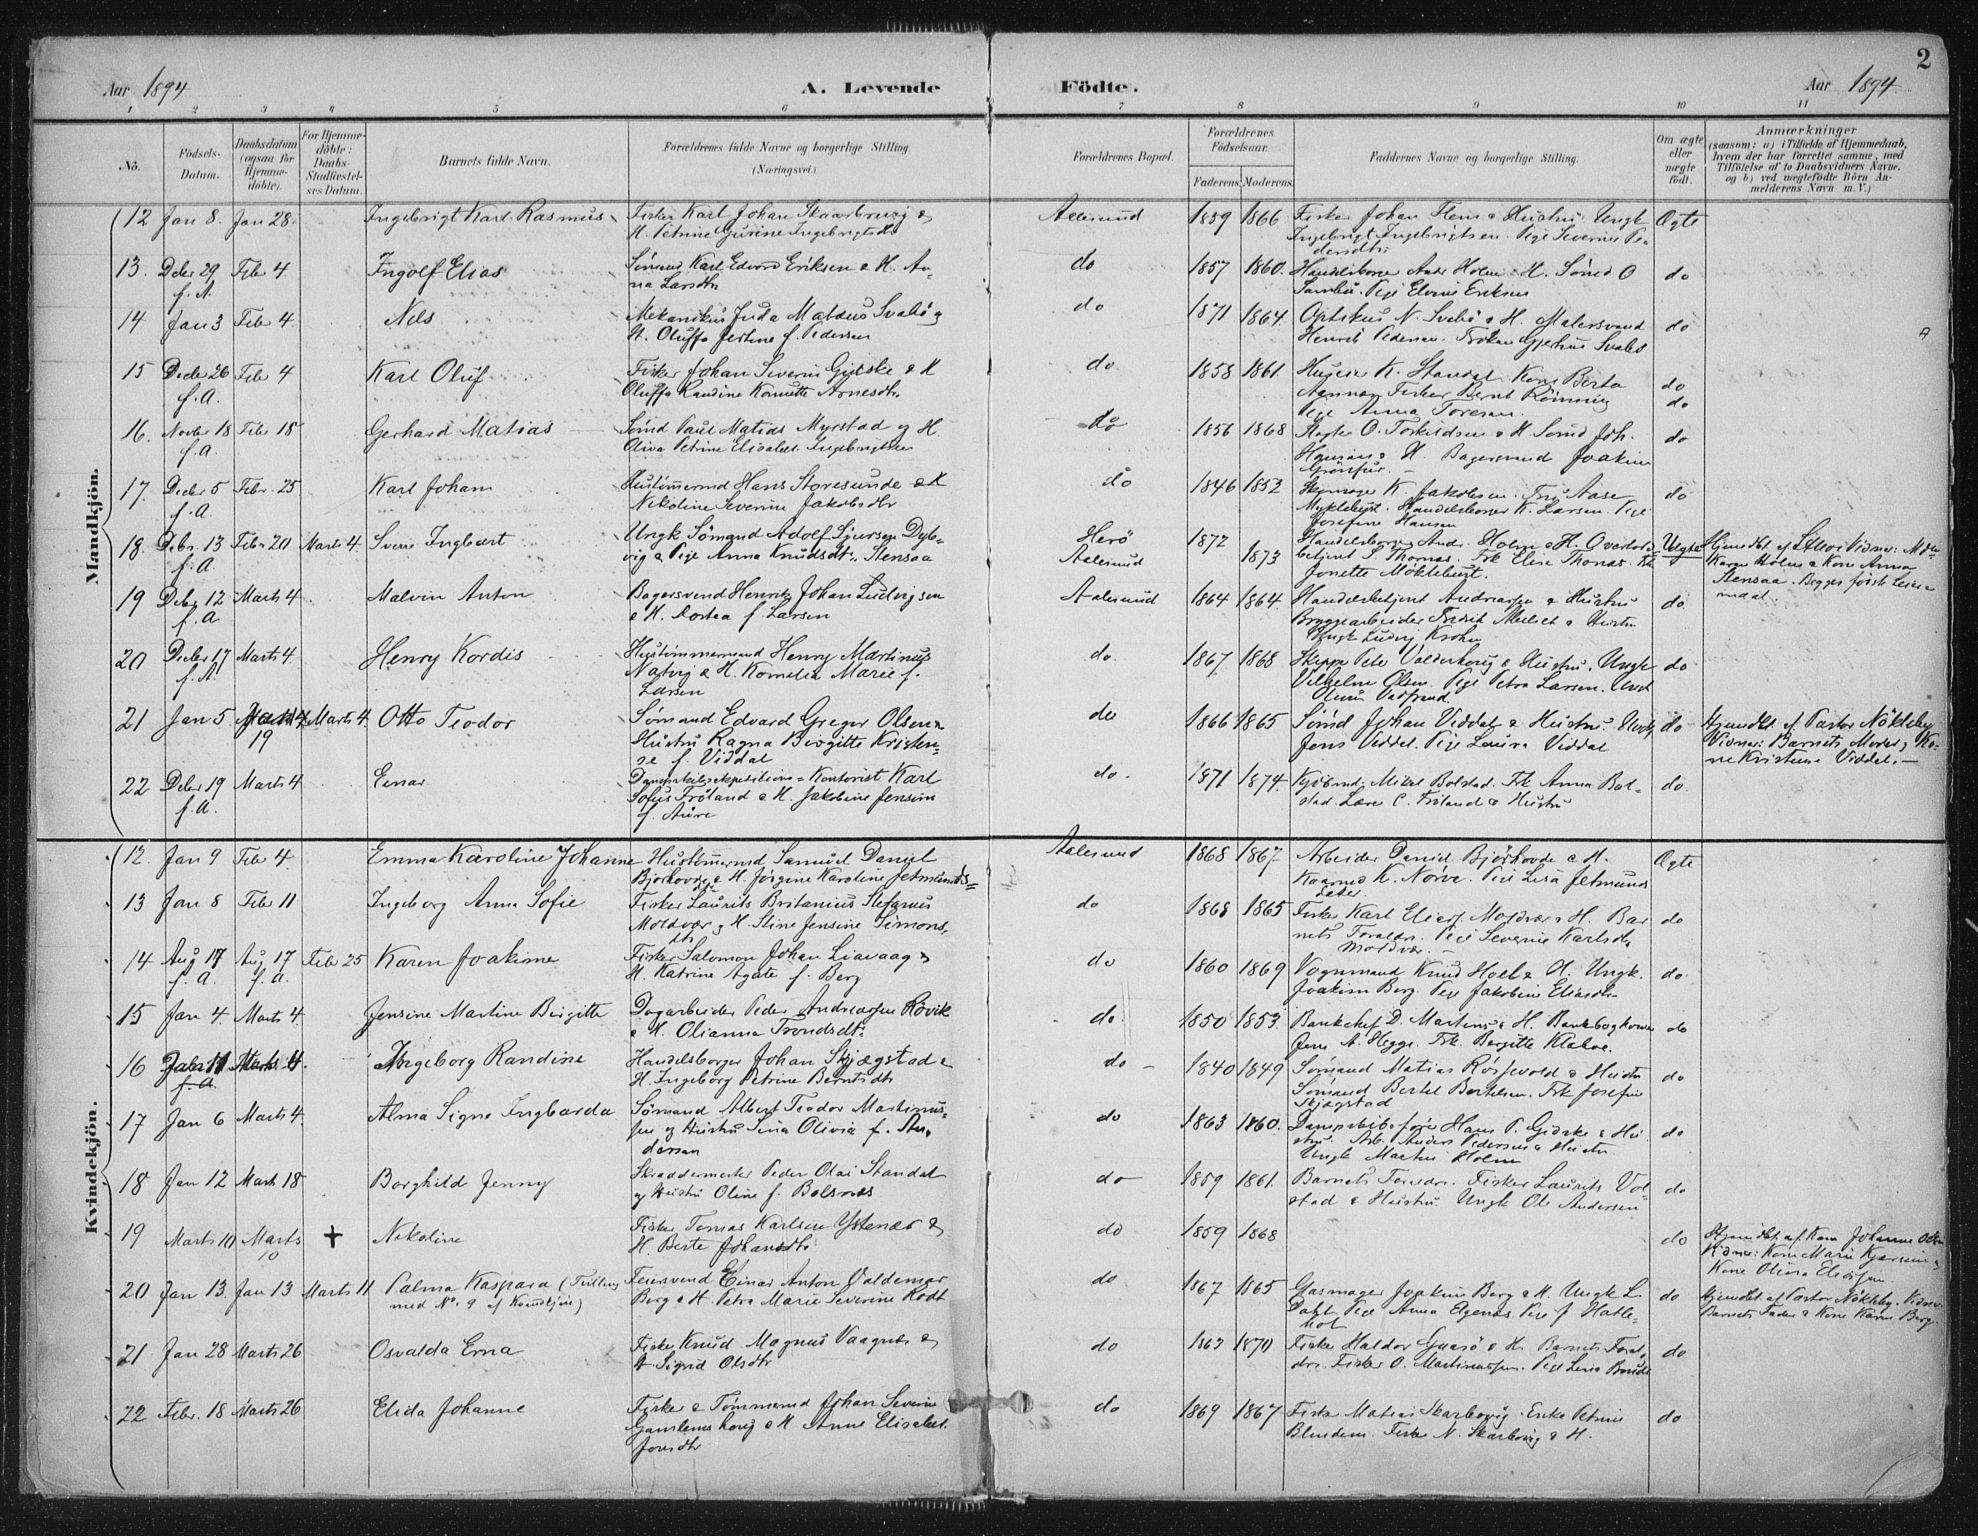 2
Aar 1894
A. Levende
Födte.
Aar 1894
1 2 3 4 5 6 7 8 9 10 11
No.
Födsels-Datum.
Daabsdatum (ogsaa for Hjemme-döbte).
For Hjemme-döbte: Daabs-Stadfæstel-ses Datum.
Barnets fulde Navn.
Forældrenes fulde Navne og borgerlige Stilling (Næringsvei.)
Forældrenes Bopæl.
Forældrenes Födselsaar.
Faderens. Moderens.
Faddernes Navne og borgerlige Stilling.
Om ægte eller uægte födt.
Anmærkninger
(saasom: a) i Tilfælde af Hjemmedaab, hvem der har forrettet samme, med Tilföielse af to Daabsvidners Navne. og b) ved uægtefödte Börn An-melderens Navn m. V.)
Mandkjön.
12 Jan 8. Jan 28. Ingebrigt Karl Rasmus
Fisker Karl Johan
Aalesund 1859 1866 Fisker Johan Flem & Hustru. Ungk Ægte
Ingebrigt Ingebrigtsen. Pige Severine Pe-
dersdtr.
13. Decbr 29 Febr 4 Ingolf Elias
f. A.
Sömand Karl Edvard Eriksen & H. An-
na Larsdtr
do 1857 1860. Handelsborger Andr Holm & H. do
Pige Elvine Eriksen
14 Jan 3 Febr 4 Nils
Mekanikus Juda Matæus Svabö &
H. Oluffa Jertine f. Pedersen
do 1871 1864. Optikus N. Svabö & H. Malersvend do
Henrik Pedersen. Fröken Svabö
15 Decbr 26 Febr 4 Karl Oluf
f. A.
Fisker Johan Severin Gjidske & H
Oluffa Randine Kornette Arnesdtr.
do 1858 1861. K. Standal Kone Berta do
Fisker Bernt Rönning do
Pige Anna Toresen.
16. Novbr 18 Febr 18 Gerhard Matias
f. A.
Sömd Paul Matias Myrstad og H.
Oliva Petrine Elisabet Ingebrigtsen
do 1856 1868 O. Torkildsen & H. Sömd Joh. do
Hansen & H. Bagersvend Joakim
17. Decbr 5 Febr. 25 Karl Johan
f. A.
Hustömmermd Hans Storesunde & H
Nikoline Severine Jakobsdtr
do 1846 1852 K. Jakobsen. Fru Aase do
Myklebust. Handelsborger K. Larsen. Pige
Josefine Hansen
18. Decbr. 13 Febr 20 Marts 4. Svein Ingbert
f. A.
Ungk Sömand Adolf Sjursen Dyb-
vig & Pige Anna Knudsdtr. Stensaa
Herö 1872
Aalesund 1873
Handelsborger Andr. Holm & H. Uægte
betjent S. Thomas. Frk Elise Thomas.
Jonette Möklebust.
Hjemdbt. af Vidner:
Kone Holm & Kone Anna
Stensaa. Begges förste Leier-
maal.
19 Decbr 12 Marts 4 Malvin Anton
f. A
Bagersvend Henrik Johan Ludvigsen
& H. Dortea f. Larsen
Aalesund 1864 1864. Handelsbetjent Andreassen & Hustru do
Bryggearbeider & Hustru
Ungk Ludvig Krohn
20 Decbr 17 Marts 4 Henry Kordis
f. A
Hustömmermand Henry Martinus
Natvig & H. Kornelia Marie f.
Larsen
do. 1867 1868 Skipper Peter Valderhoug & Hustru. Ungk do
Vilhelm Olsen. Pige Petra Larsen.
21 Jan 5 19 Marts 4. Otto Teodor
Sömand Edvard Greger Olsen &
Hustru Ragna Birgitte Kristen-
se f. Viddal
do 1866 1865 Sömd Johan Viddal & Hustru. Ungk do
Jens Viddal. Pige Laura Viddal
Hjemdbt. af Pastor Nökleby
Vidner: Barnets Moder & Ko-
ne Kristense Viddal.
22 Decbr 19 Marts 4 Einar
f. A.
Dampskibsekspeditions-Kontorist Karl
Sofus Fröland & H. Jakobine Jensine
f. Aure
do. 1871 1874. Kjöbmd Mikal Bolstad. Frk Anna Bol- do.
stad. Lærer C. Fröland & Hustru
Kvindekjön.
12. Jan 9 Febr 4. Emma Karoline Johanne
Hustömmermd Samuel Daniel
Björhovde & H. Jörgine Karoline Jetmunds-
dtr
Aalesund 1868 1867 Arbeider Daniel Björhovde & H. Ægte
K. Nörve. Pige Lisa Jetmunds
datter
13 Jan 8 Febr 11 Ingeborg Anna Sofie
Fisker Laurits Britanius Stefanus
Moldvær & H. Stine Jensine Simons-
dtr
do 1868 1865 Fisker Karl Moldvær & H. Bar do
nets Foreldr. Pige Severine Karlsdtr
Moldvær.
14 Aug 17 Aug 17 Febr 25 Karen Joakime
f. A. f. A.
Fisker Salomon Johan Liavaag &
H. Katrine Agate f. Berg
do 1860 1869 Vognmand Knud Holl & H. Ungk. do
Joakim Berg. Pige Jakobine Eliasdtr.
15 Jan 4. Marts 4. Jensine Martine Birgitte
Dagarbeider Peder Andreassen Rövik
& H. Olianna Trondsdtr.
do 1850 1853. Bankchef D. Martens & H. Bankbogholder do
Jens A. Hegge. Frk. Bergitte Klaboe.
16 Marts 4. Ingeborg Randine
f. A.
Handelsborger Johan Skjægstad &
H. Ingeborg Petrine Berntsdtr
do 1840 1849 Sömand Matias Rösvold & Hustru do
Sömand Bertel Bertelsen. Frk Josefine
Skjægstad
17 Jan 6 Marts 4. Alma Signe Ingbarda
Sömand Albert Teodor Martinus-
sen og Hustru Sina Olivia f. An-
dersen
do 1863 1860. Dampskibsförer Hans P. Gidske & Hu- do
stru. Arb. Anders Pedersen & Hustru
Ungk Martin Holm
18 Jan 12 Marts 18 Borghild Jenny
Skræddermester Peder Olai Standal
og Hustru Oline f. Bolsnæs
do 1859 1861. Barnets Foreldr. Fisker Laurits Vol- do
stad & Hustru. Ungk Ole Andersen
19 Marts 10 Marts 10 + Nikoline
Fisker Tomas Karlsen Ystenæs &
H. Berte Johansdtr
do 1859 1868 do
Hjemdbt. af Kone Johanne
Vidner: Kone Marie
Kone Olivia
20 Jan 13. Jan 13 Marts 11 Palma Kaspara (Tvilling
med No. 9 af Kvindkjön)
Feiersvend Einar Anton Valdemar
Berg & H. Petra Marie Severine Rödt
do 1867 1865 Gasmager Joakim Berg & H. Ungk L. do
Dahl Pige Anna Elgenæs. Pige f. Hatle-
hol
Hjemdbt. af Pastor Nökleby. Vidner:
Barnets Fader & Kone Karen Berg.
21 Jan 28 Marts 26 Osvalda Erna
Fisker Knud Magnus Vaagnæs &
H Sigrid Olsdtr
do 1863 1870 Fisker Haldor & H. Barnets Forel- do
dre. Fisker O. Martinussen. Pige Lina
22 Febr. 18 Marts 26 Elida Johanne
Fisker & Tömmermd Johan Severin
Gamlemshoug & H Anne Elisabet
Jonsdtr
do 1869 1867 Fisker Matias Skarbövig. Enke Petrine do
Blindem. Fisker N. Skarbövig & H.